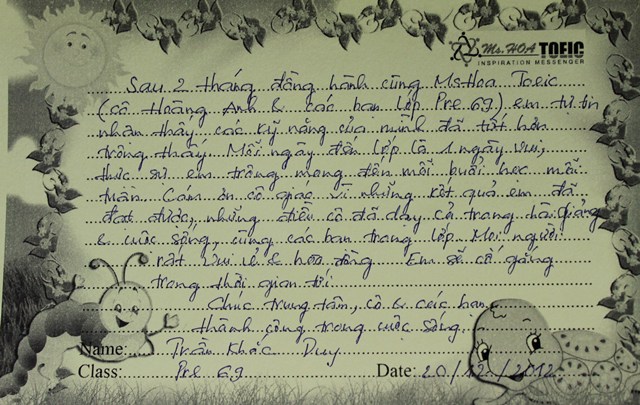 Ms. HOA TOEIC
INSPIRATION MESSENGER
Sau 2 tháng đồng hành cùng Ms Hoa Toeic
(cô Hoàng Anh & các bạn lớp Pre 69) em tự tin
nhận thấy các kỹ năng của mình đã tốt hơn
trông thấy. Mỗi ngày đến lớp là 1 ngày vui,
thực sự em trông mong đến mỗi buổi học mỗi
tuần. Cám ơn cô giáo vì những kết quả em đã
đạt được, những điều cô đã dạy cả trong bài giảng
& cuộc sống, cùng các bạn trong lớp. Mọi người
rất vui vẻ & hòa đồng. Em sẽ cố gắng
trong thời gian tới.
Chúc trung tâm, cô & các bạn
thành công trong cuộc sống.
Name: Trần Khắc Duy
Class: Pre 69 Date: 20/12/2012